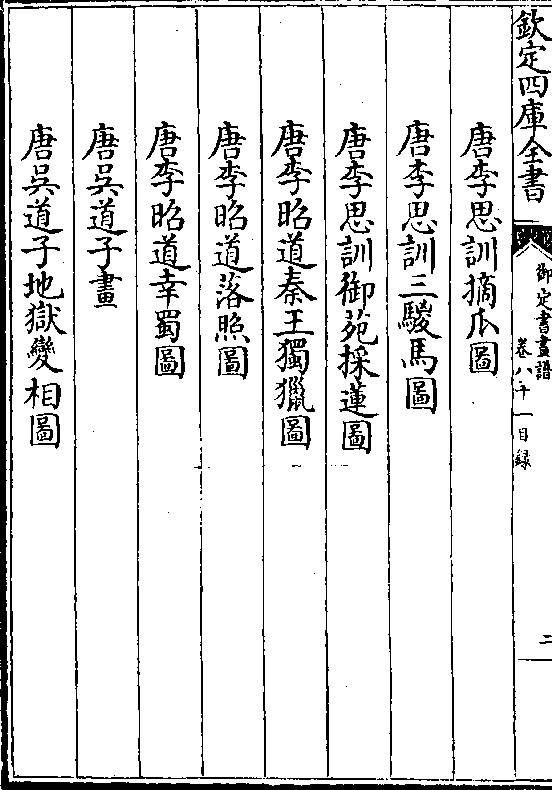 欽定四庫全書
御定書畫譜
卷八十一目録
二
唐李思訓摘瓜圖
唐李思訓三駿馬圖
唐李思訓御苑採蓮圖
唐李昭道秦王獨獵圖
唐李昭道落照圖
唐李昭道幸蜀圖
唐吳道子畫
唐吳道子地獄變相圖